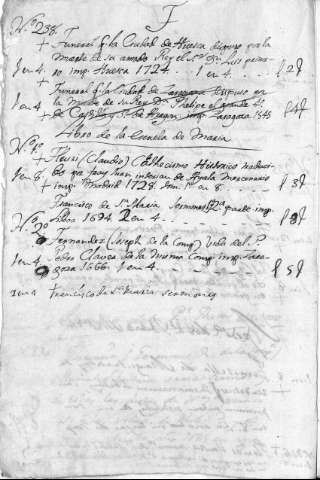 F
Nº 238.
+ Funeral q̃ la Ciudad de Huesca dispuso pª la
muerte de su amado Rey el Sʳ Dⁿ Luis prime-
1 en 4. ro imp. Huesca 1724. .. 1 en 4. .. f 2 f
+ Funeral q̃ la Ciudad de Zaragoza dispuso en
1 en 4 la muerte de su Rey Dⁿ Phelipe el grande 4º
+ de Castilla y 3º de Aragon imp. Zaragoza f 4 f
Libro de la Escuela de Maria
Nº 1º
+ Fleuri (Claudio) Cathecismo Historico traduci-
1 en 8. do por fray Juan interian de Ayala Mercenario
+ imp. Madrid 1728. 1 en 8 .. f 3 f
Francisco de Sᵗª Maria Sermones parte imp.
Lisboa 1694 2 en 4. f 8 f
Nº 2º
+ Fernandez (Joseph de la Comp.) Vida del P.
1 en 4. Pedro Claver de la misma Comp. imp. Zara-
goza 1666. 1 en 4. f 5 f
2 en 4 Francisco de Sᵗª Maria sermones